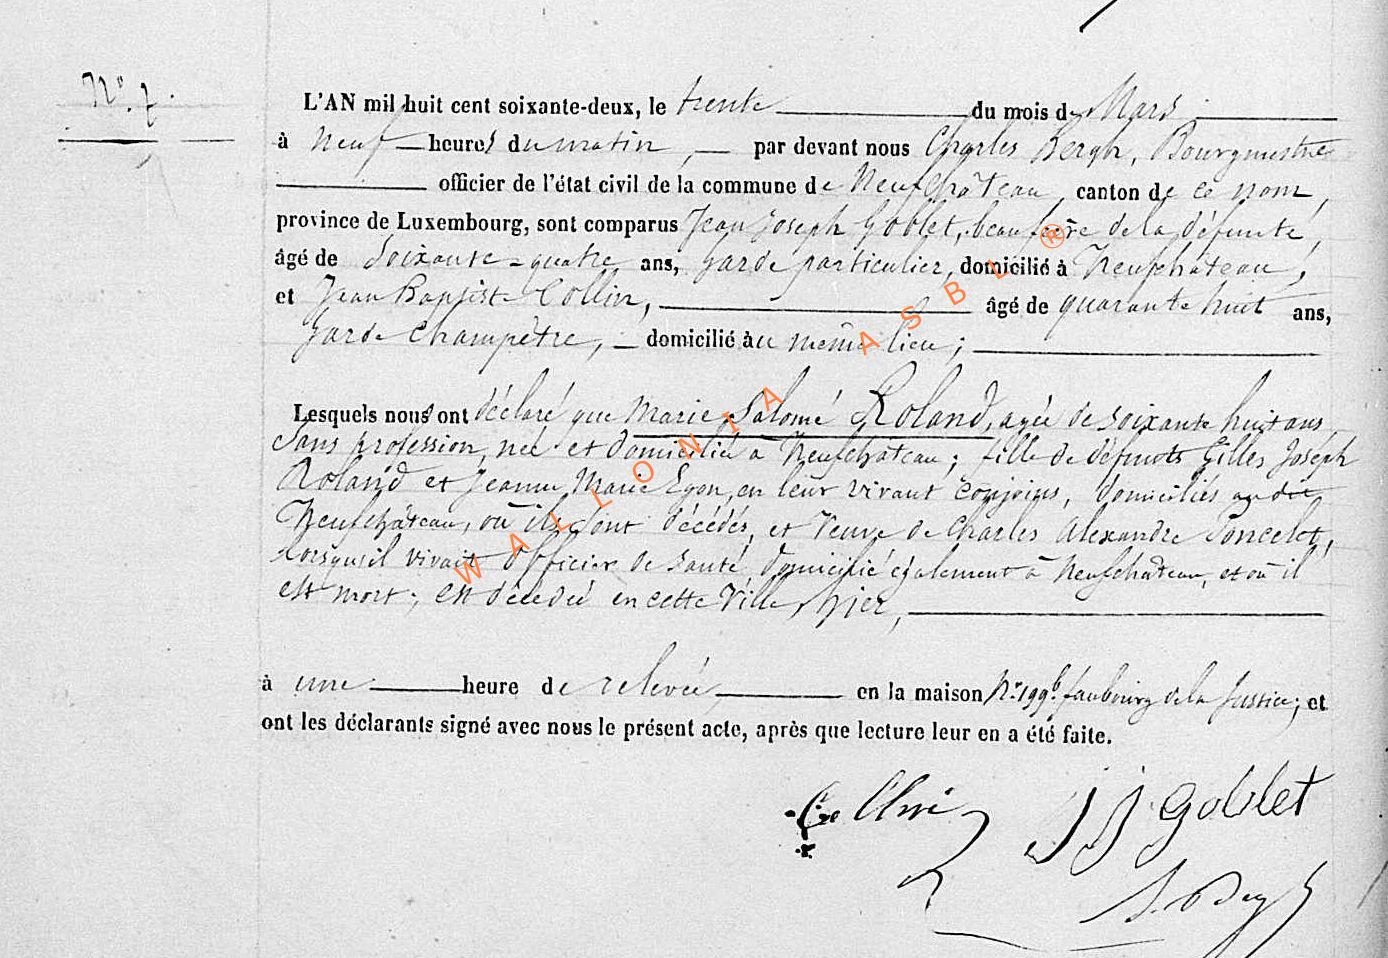 N° 7.
L'AN mil huit cent soixante-deux, le trente du mois de Mars
à neuf heures du matin, par devant nous Charles Bergh, Bourgmestre
officier de l'état civil de la commune de Neufchâteau, canton de ce nom,
province de Luxembourg, sont comparus Jean Joseph Goblet, beaufrère de la défunte,
âgé de Soixante-quatre ans, garde particulier, domicilié à Neufchâteau,
et Jean Baptiste Collin, âgé de quarante huit ans,
garde champêtre, domicilié au même lieu;
Lesquels nous ont déclaré que Marie Salomé Roland, agée de soixante huit ans
sans profession, née et domiciliée à Neufchâteau; fille de défunts Gilles Joseph
Roland et Jeanne Marie Egon, en leur vivant conjoins, domiciliés au dit
Neufchâteau, où ils sont décédés, et Veuve de Charles Alexandre Poncelet,
lorsqu'il vivait Officier de Santé, domicilié également à Neufchâteau, et où il
est mort; est décédée en cette Ville, hier,
à une heure de relevée, en la maison N° 199b. faubourg de la Justice; et
ont les déclarants signé avec nous le présent acte, après que lecture leur en a été faite.
JJ Goblet
WALLONIA ASBL ®